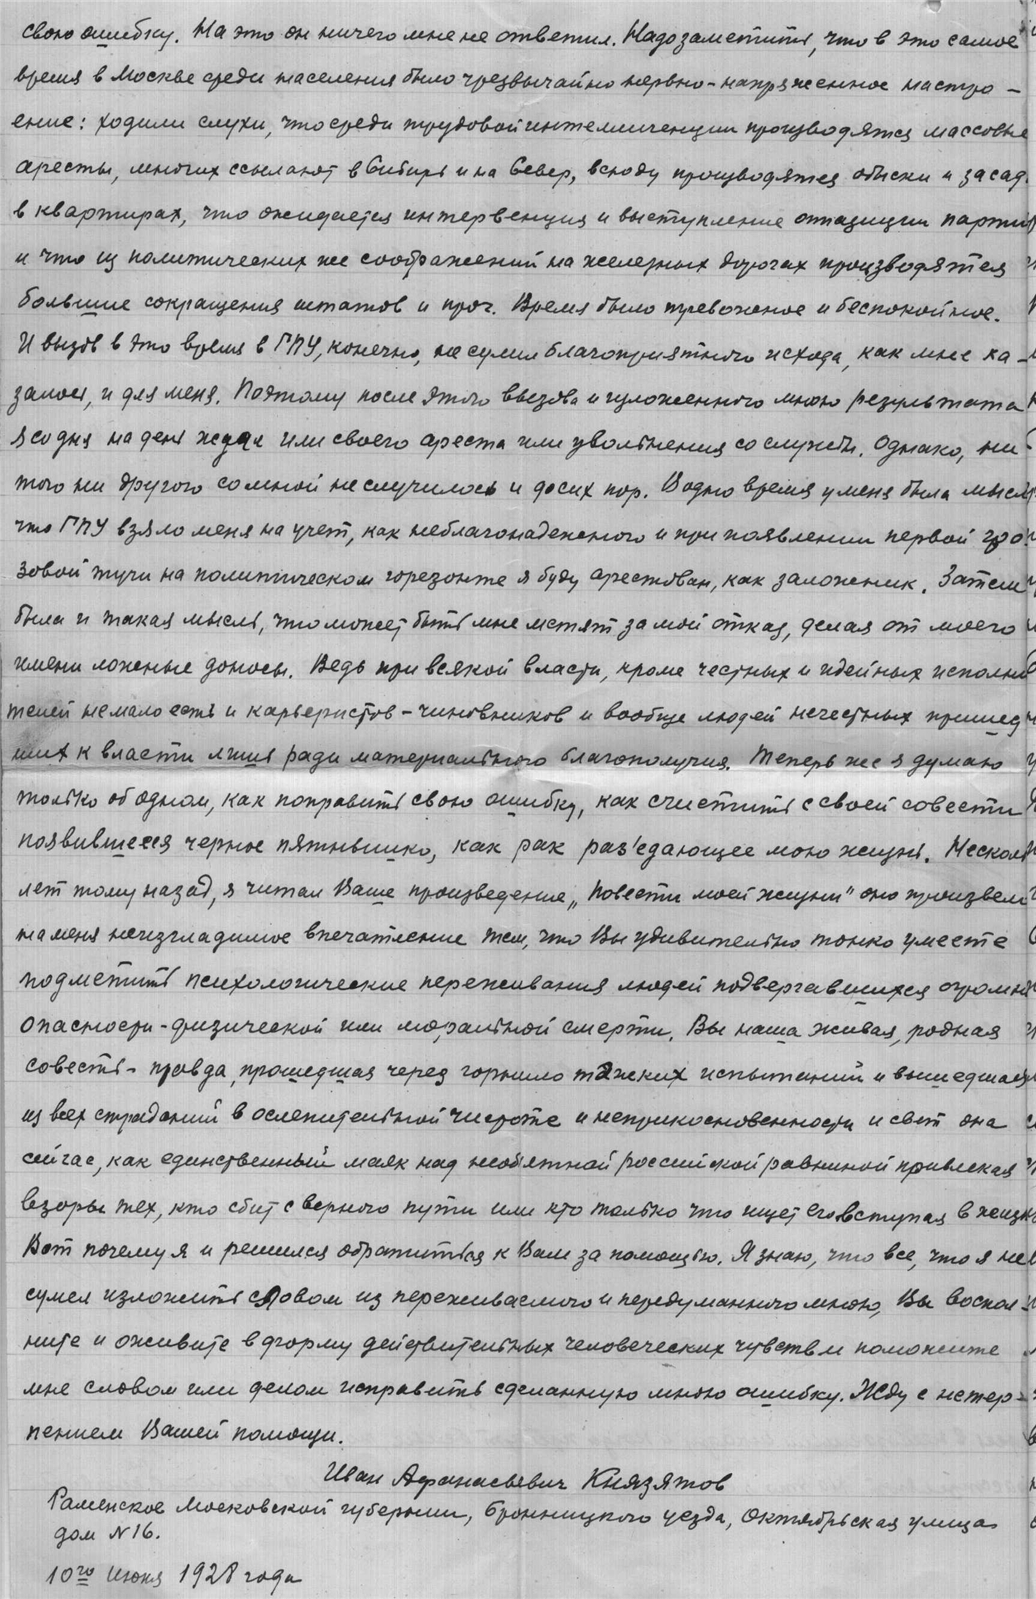 свою ошибку. На это он ничего мне не ответил. Надо заметить, что в это самое
время в Москве среди населения было чрезвычайно нервно-напряженное настро-
ение: ходили слухи, что среди трудовой интеллигенции производятся массовые
аресты, многих ссылают в Сибирь и на Север, всюду производятся обыски и засад
в квартирах, что ожидается интервенция и выступление оппозиции партии
и что из политических же соображений на железных дорогах производятся
большие сокращения штатов и проч. Время было тревожное и беспокойное.
И вызов в это время в ГПУ, конечно, не сулил благоприятного исхода, как мне ка-
залось, и для меня. Поэтому после этого вызова и изложенного мною результата
я со дня на день ждал или своего ареста или увольнения со службы. Однако, ни
того ни другого со мной не случилось и до сих пор. В одно время у меня была мысль
что ГПУ взяло меня на учет, как неблагонадежного и при появлении первой гро-
зовой тучи на политическом горезонте я буду арестован, как заложник. Затем
была и такая мысль, что может быть мне мстят за мой отказ, делая от моего
имени ложные доносы. Ведь при всякой власти, кроме честных и идейных исполни
телей немало есть и карьеристов-чиновников и вообще людей нечестных пришед
ших к власти лишь ради материального благополучия. Теперь же я думаю
только об одном, как поправить свою ошибку, как счистить с своей совести
появившееся черное пятнышко, как рак раз'едающее мою жизнь. Несколь
лет тому назад, я читал Ваше произведение „Повести моей жизни" оно произвело
на меня неизгладимое впечатление тем, что Вы удивительно тонко умеете
подметить психологические переживания людей подвергавшихся огромной
опасности - физической или моральной смерти. Вы наша живая, родная
совесть - правда, прошедшая через горнило тяжких испытаний и вышедшая
из всех страданий в ослепительной чистоте и неприкосновенности и свет она
сейчас, как единственный маяк над необ'ятной российской равниной привлекая
взоры тех, кто сбит с верного пути или кто только что ищет его вступая в жизнь
Вот почему я и решился обратиться к Вам за помощью. Я знаю, что все, что я не
сумел изложить словом из переживаемого и передуманного мною, Вы воспол-
ните и оживите в форму действительных человеческих чувств и поможите
мне словом или делом исправить сделанную мною ошибку. Жду с нетер-
пением Вашей помощи.
Иван Афанасьевич Князятов
Раменское Московской губернии, Бронницкого уезда, Октябрьская улица
дом №16.
10го июня 1928 года